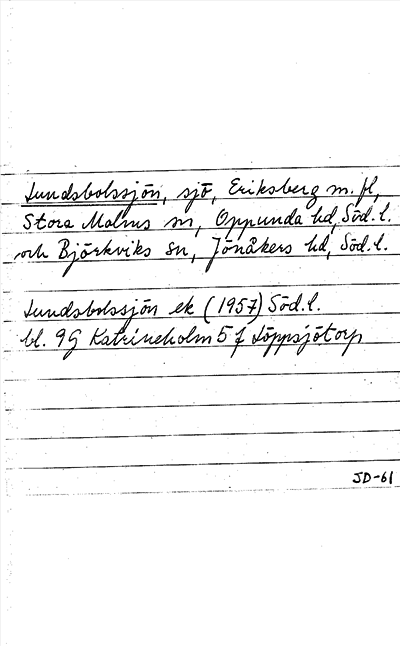 Lundsbolssjön, sjö, Eriksberg m. fl,
Stora Malms sn, Oppunda hd, Söd. l.
och Björkviks sn, Jönåkers hd, Söd. l.
Lundsbolssjön ek (1957) Söd. l.
bl. 9G Katrineholm 5 f Löppsjötorp
JD-61